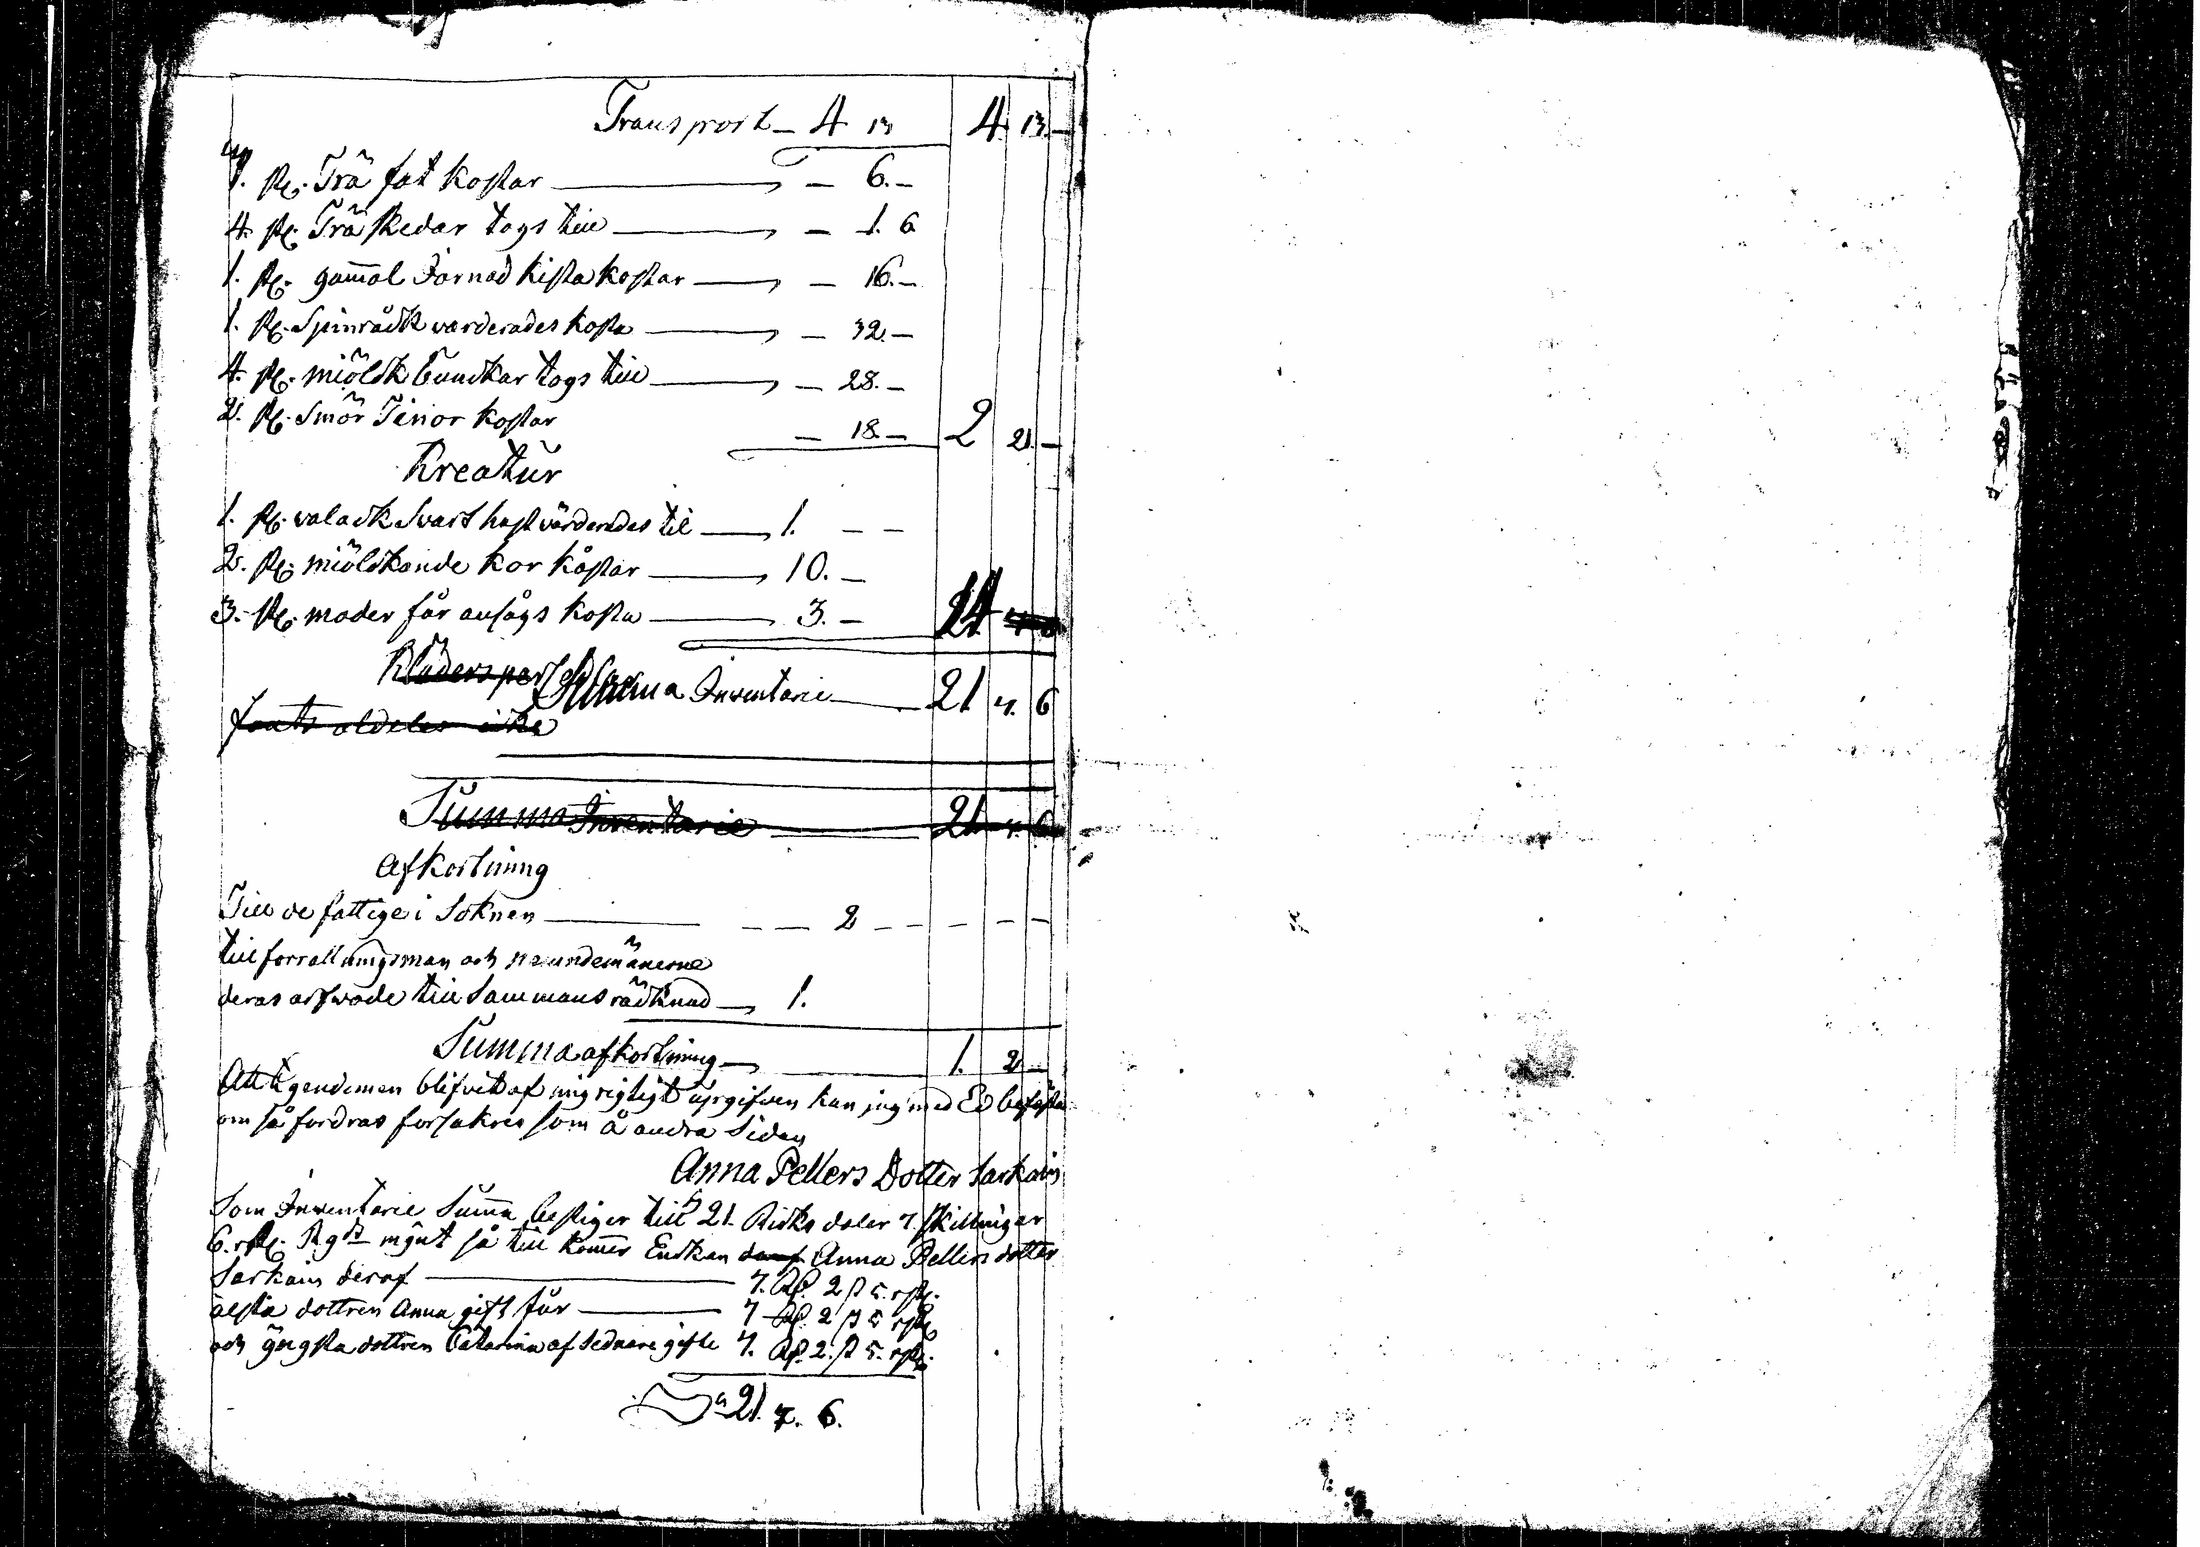 Transport — 4 13 4. 13. —
1. st. Trä fat kostar — — 6. —
4. st. Trä skedar togs till — — 1. 6
1. st. gam̄al Järnad kista kostar — — 16. —
1. st. Spinrådk värderades kosta — — 32. —
4. st. miölck bunckar togs till — — 28. —
2. st. Smör Tinor kostar — 18. — 2 21. —
Kreatur
1. st. valack Svart häst värderades til — 1. — —
2. st. miölckande kor kåstar — 10. —
3. st. moder får ansågs kosta — 3. — 14
Kläderspersedlar
Summa Inventarie — 21 7. 6
fants aldeles icke
Summa Inventarie — 21 7. 6
Afkortning
Till de fattige i Soknen — — — 2 — — — — —
till forrattningsman och nämndemänerne
deras arfwode till Sammans räcknad — 1.
Summa afkortning — 1. 2 —
Att Egendomen blifvit af mig rigtigt upgifven kan jag med Ed befästa
om så fordras forsäkras som å andra Sidan
Anna Pellers Dotter Sarkain
Som Inventarie Sum̄a bestiger till 21 Ricks daler 7. skillingar
6. rst. Rgds mynt så till kom̄er Enckan Anna Pellers dotter
Sarkain deraf — 7. Rd. 2 s 5. rst.
älsta dottren Anna gift får — 7 Rd. 2 s 5 rst.
och yngsta dottren Catarina af Sednare gifte 7. Rd. 2. s 5. rst.
Sa 21. 7. 6.